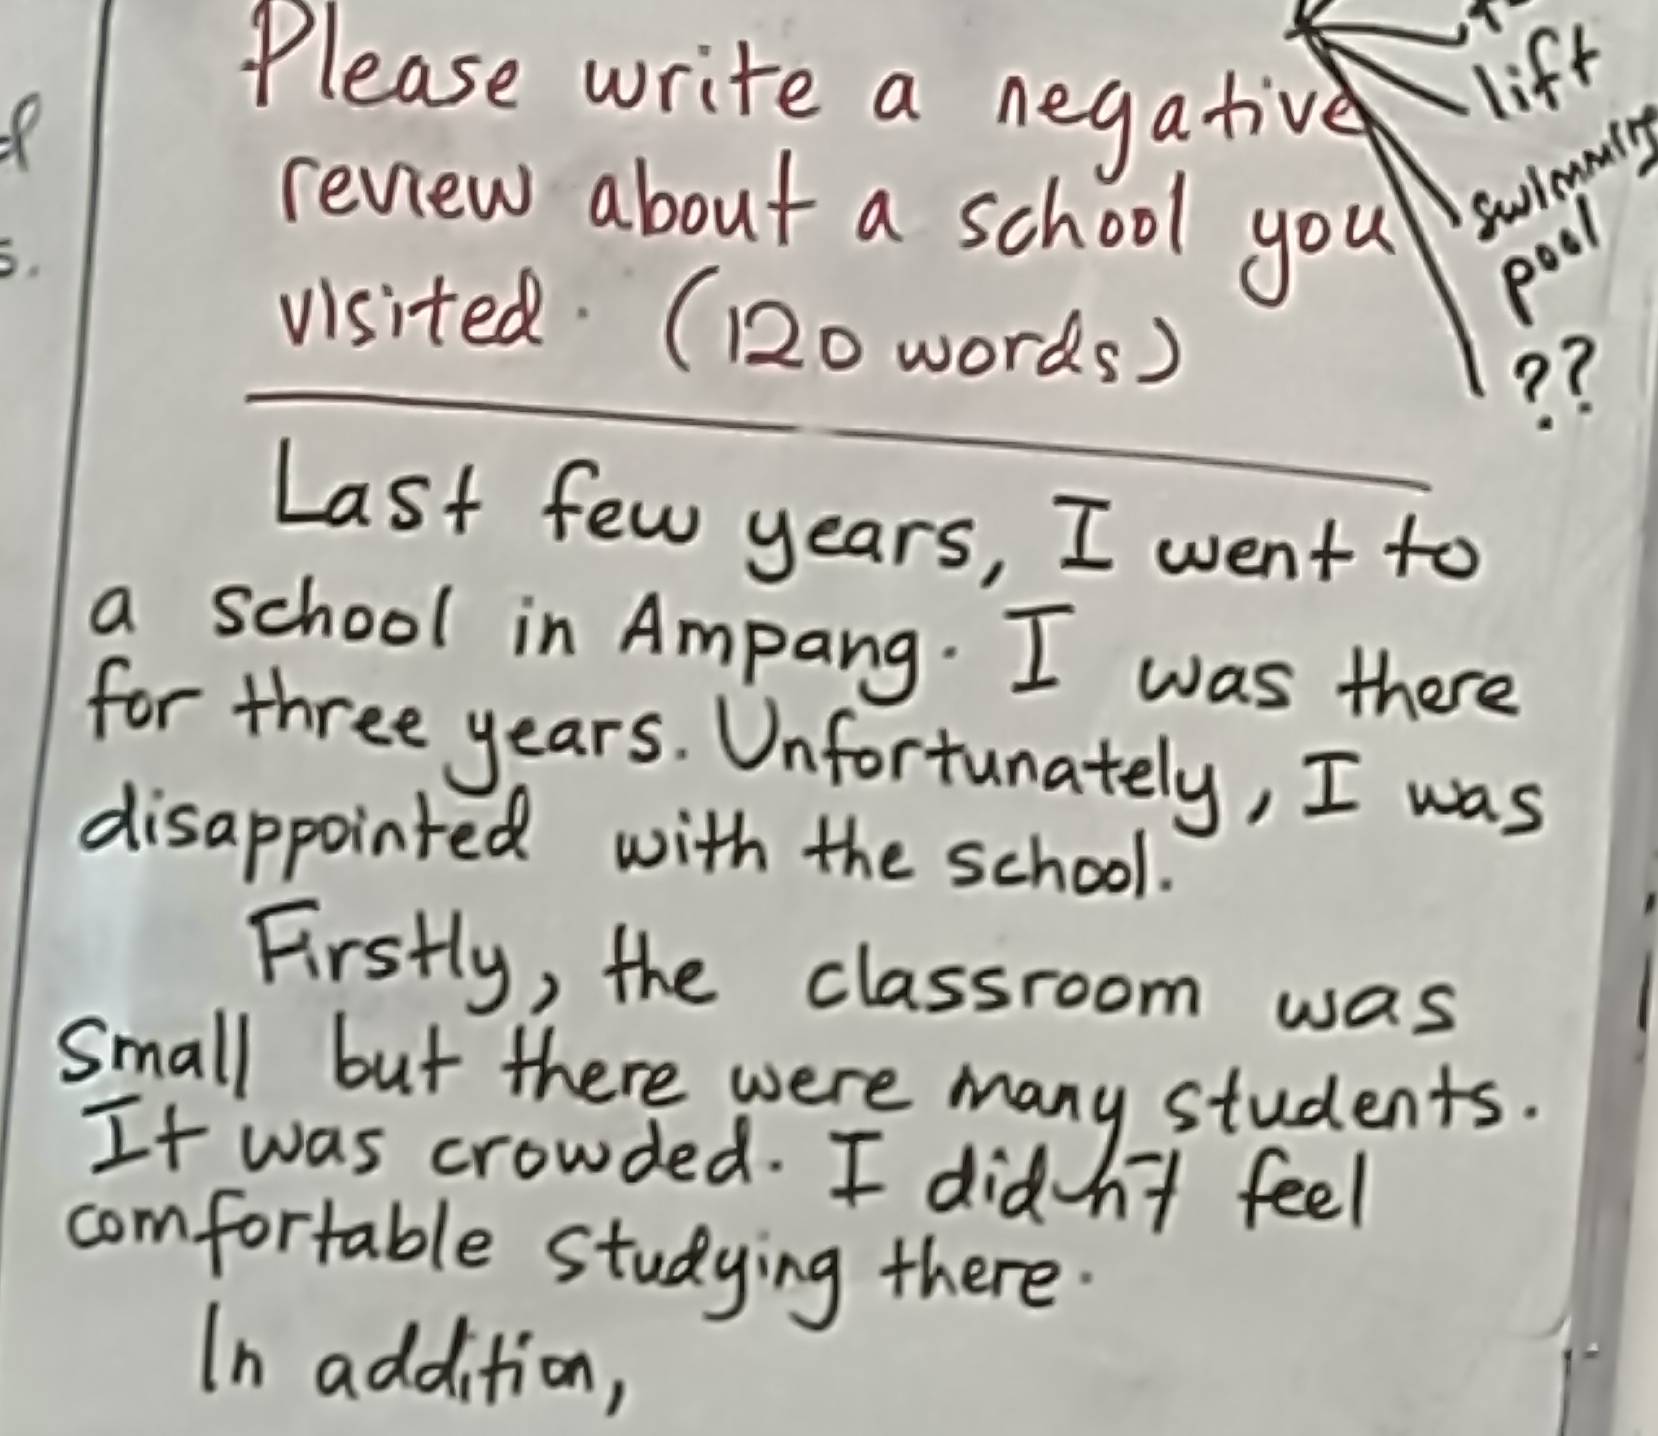 Please write a negative
review about a school you
visited. (120 words)
lift
swimming
pool
??
Last few years, I went to
a school in Ampang. I was there
for three years. Unfortunately, I was
disappointed with the school.
Firstly, the classroom was
small but there were many students.
It was crowded. I didn't feel
comfortable studying there.
In addition,